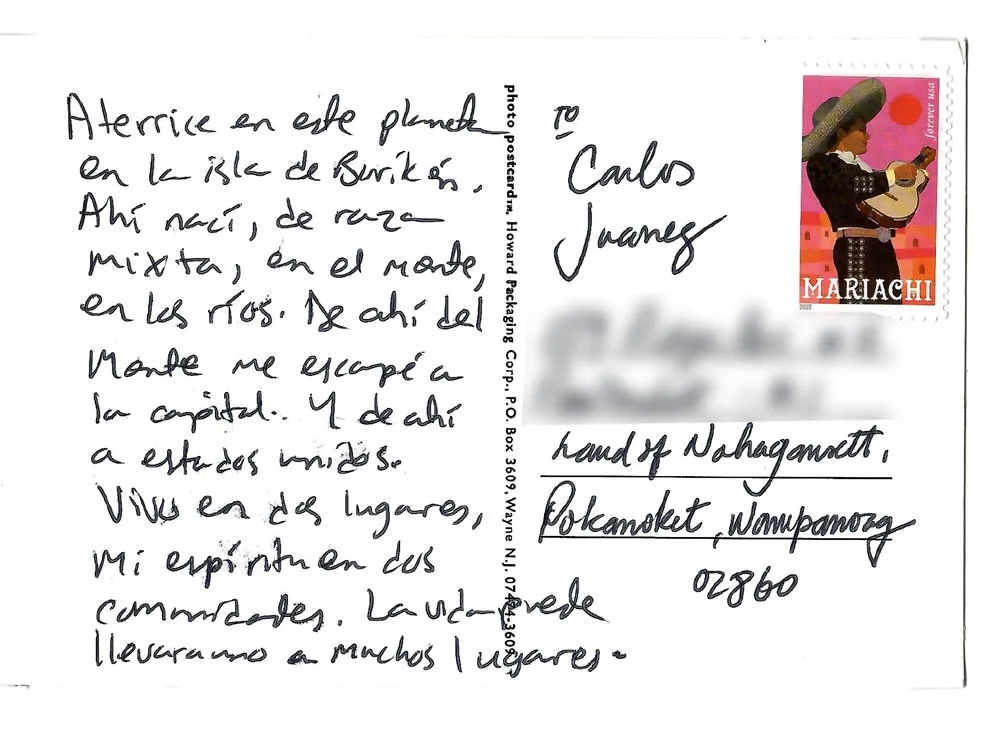 Aterrice en este planeta
en la isla de Burikén.
Ahí nací, de raza
mixta, en el monte,
en los ríos. De ahí del
Monte me escapé a
la capital. Y de ahí
a estados unidos.
Vivo en dos lugares,
mi espíritu en dos
comunidades. La vida puede
llevar a uno a muchos lugares.
photo postcards™, Howard Packaging Corp., P.O. Box 3609, Wayne N.J. 07474-3609
TO
Carlos
Juanez
Land of Nahaganset,
Pokanoket, Wampanoag
02860
forever usa
MARIACHI
2022